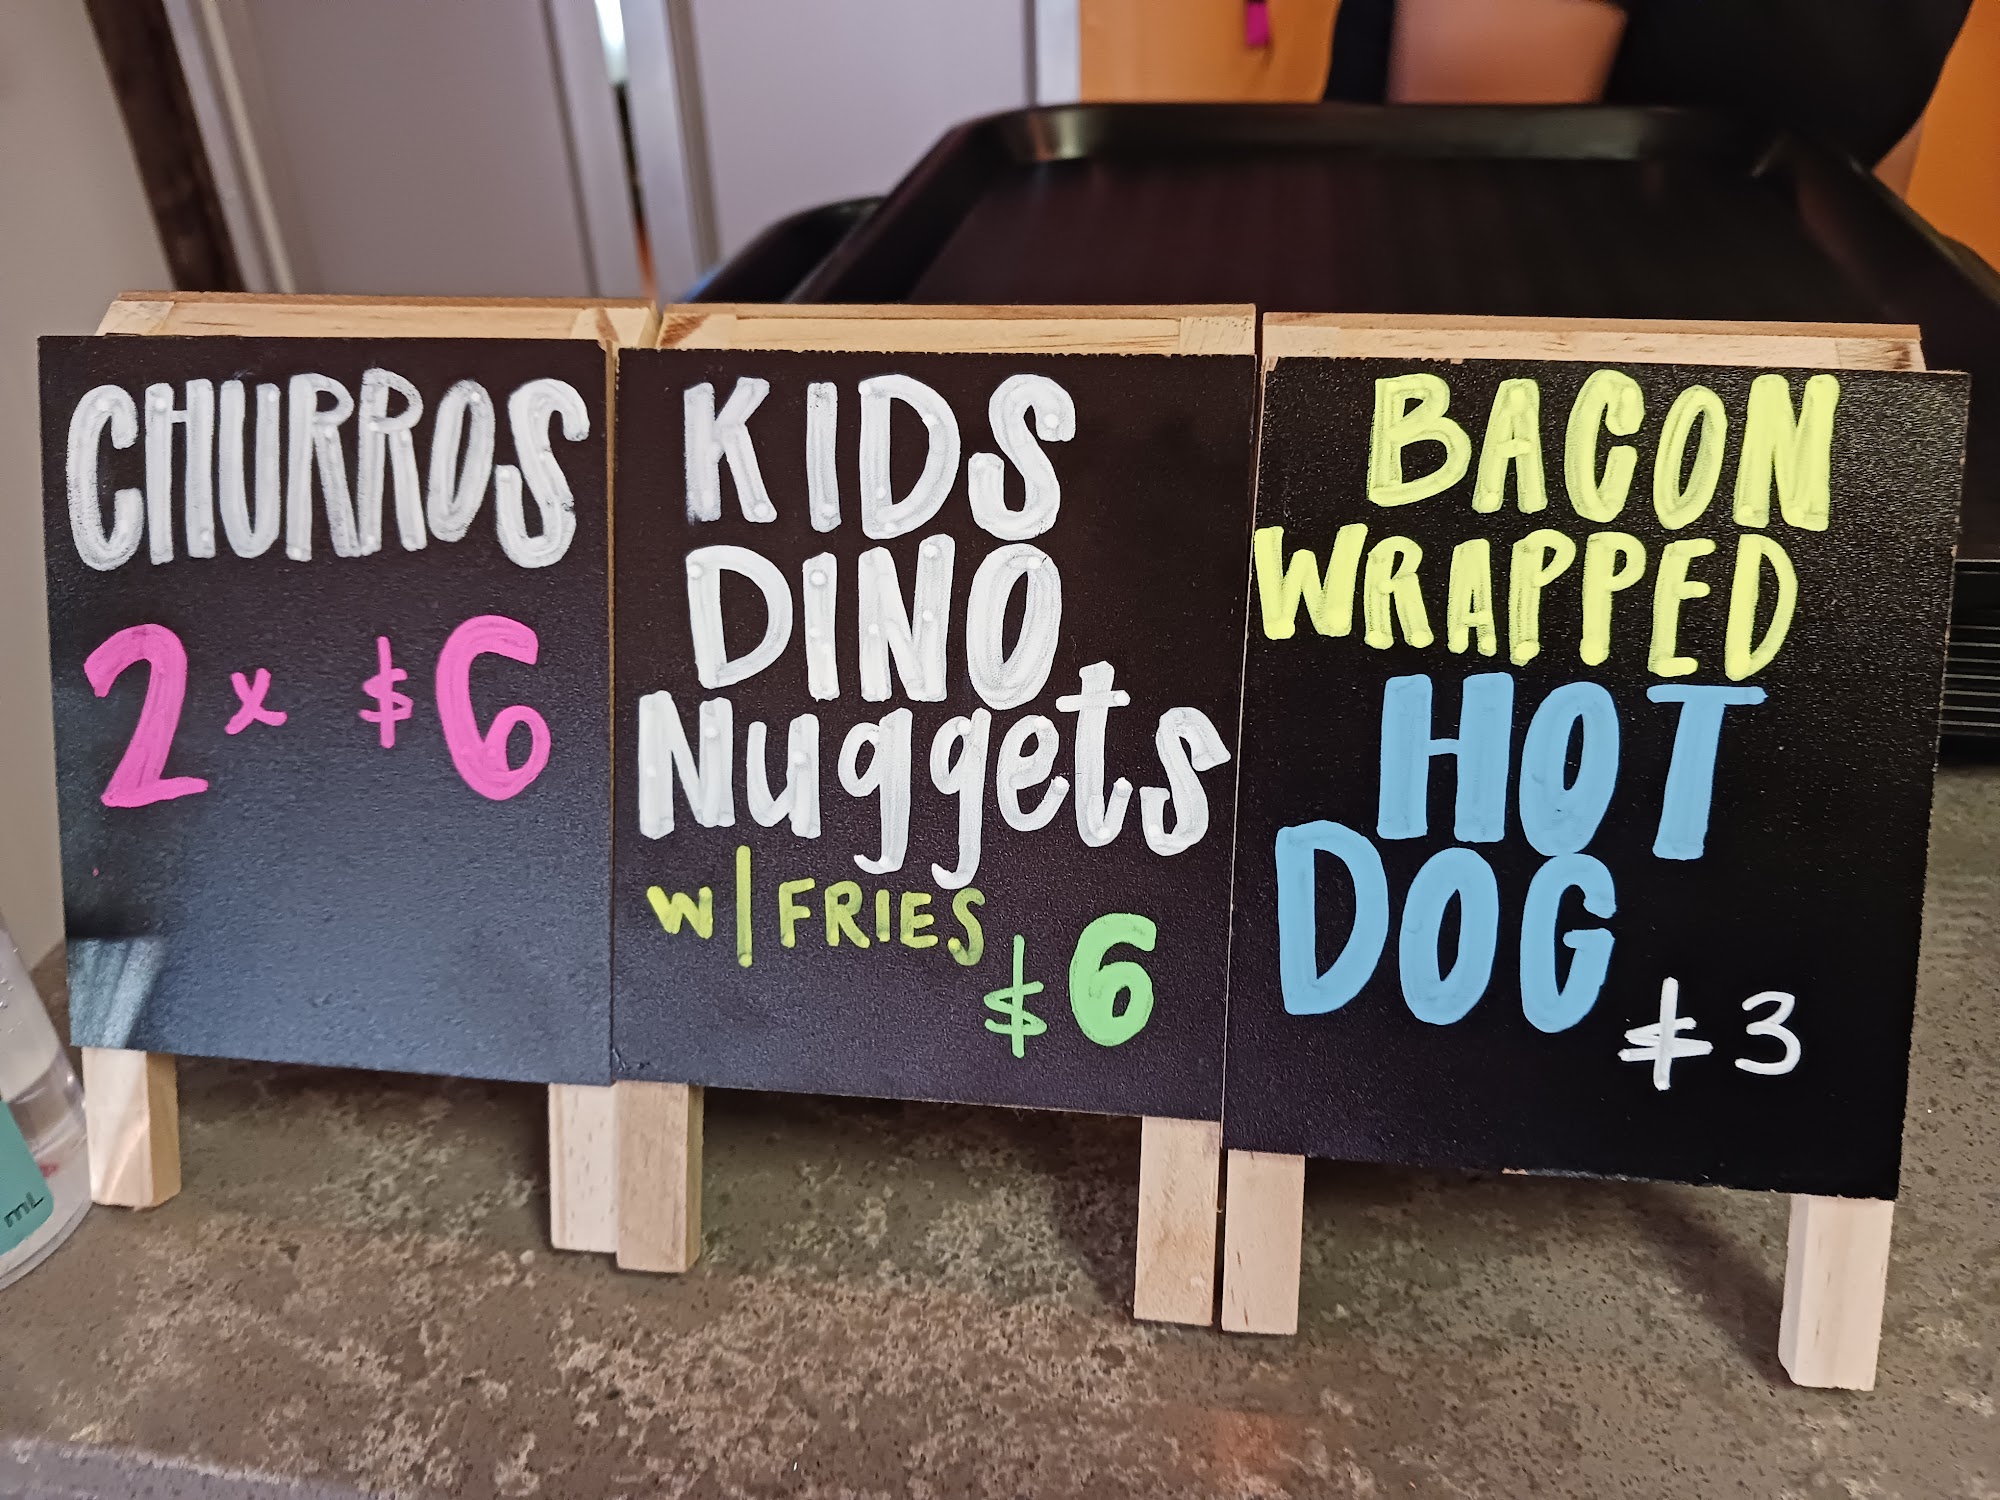 CHURROS
2x $6
KIDS
DINO
Nuggets
W/FRIES
$6
BACON
WRAPPED
HOT
DOG
$3
mL